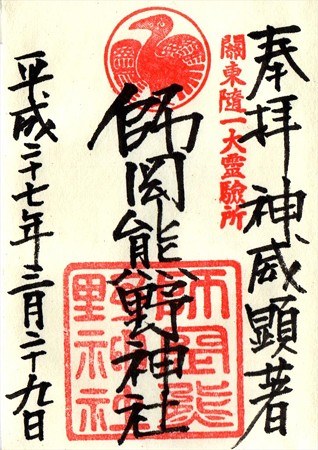 奉拝 神威顕著
關東隨一大靈驗所
師岡熊野神社
師岡熊
野神社
平成二十七年三月二十九日